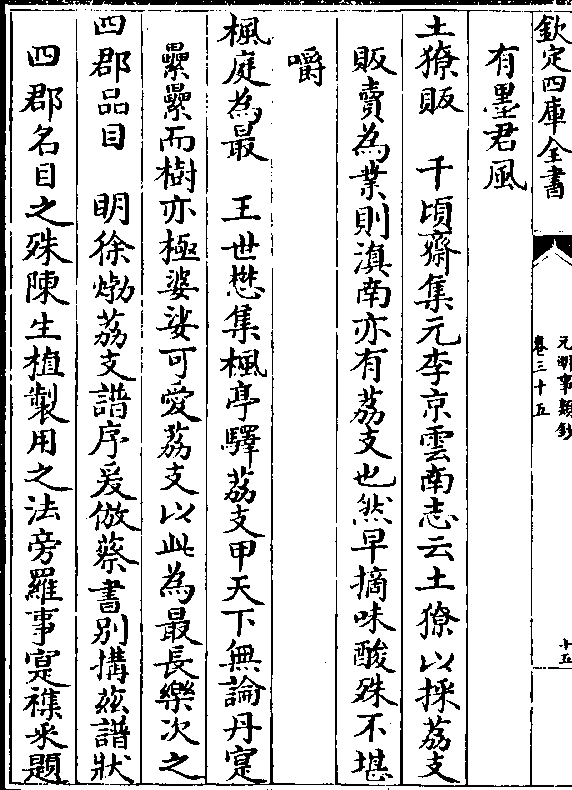 欽定四庫全書
元明事類鈔
卷三十五
十五
有墨君風
土獠販　千頃齋集元李京雲南志云土獠以採荔支
販賣為業則滇南亦有荔支也然早摘味酸殊不堪
嚼
楓庭為最　王世懋集楓亭驛荔支甲天下無論丹寔
纍纍而樹亦極婆娑可愛荔支以此為最長樂次之
四郡品目　明徐𤊹荔支譜序爰倣蔡書别搆兹譜狀
四郡名目之殊陳生植製用之法旁羅事寔襍采題